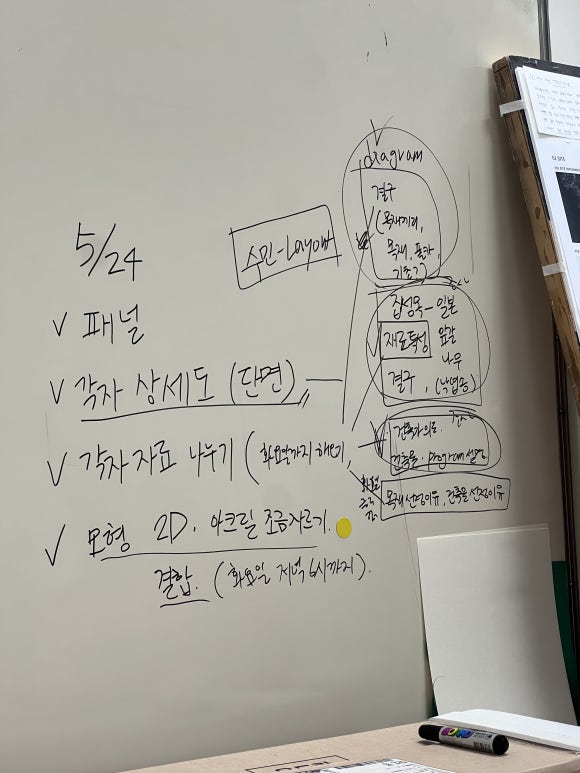 5/24
✓ 패널
✓ 각자 상세도 (단면)
✓ 각자 자료 나누기 (화요일까지 해오기,
✓ 모형 2D. 아크릴 조금 자르기.
결합. (화요일 저녁 6시까지).
수민-Layout
diagram
결구
(목재끼리,
목재,
기초?)
집성목 - 일본
재료특성 앞갈
나무
결구, (낙엽송)
건축가 의도
건축물. program 설명
목재 선정이유, 건축물 선정이유